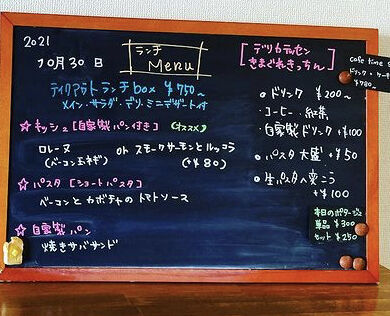 2021
10月30日
ランチ
Menu
[デリカテッセン
きまぐれきっちん]
テイクアウトランチbox ¥750~
メイン・サラダ・デリ・ミニデザート付
☆キッシュ[自家製パン付き](オススメ)
ロレーヌ or スモークサーモンとルッコラ
(ベーコン玉ネギ) (+¥80)
☆パスタ[ショートパスタ]
ベーコンとカボチャのトマトソース
☆自家製パン
焼きサバサンド
cafe time
ドリンク・ケーキ
¥780~
◎ドリンク ¥200~
・コーヒー・紅茶
・自家製ドリンク+¥100
◎パスタ大盛+¥50
◎生パスタへ変こう
+¥100
本日のポタージュ
単品¥300
セット¥250